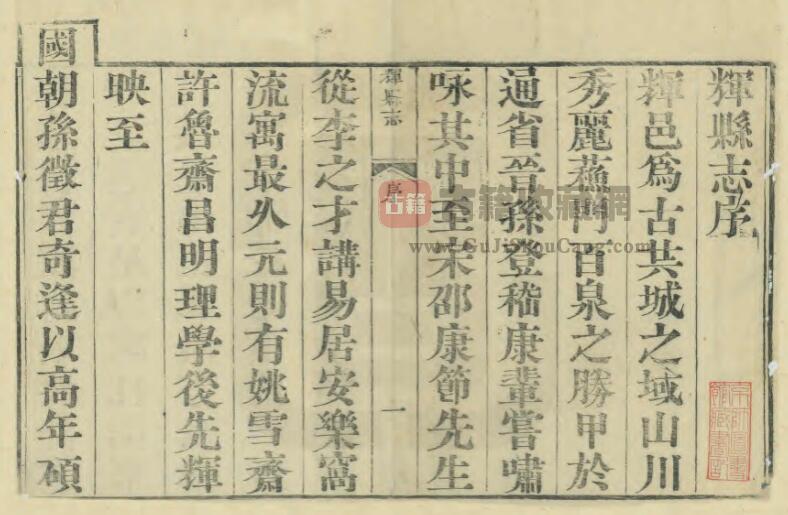 輝縣志序
輝邑爲古共城之域山川
秀麗蘇門百泉之勝甲於
通省晉孫登嵇康輩嘗嘯
咏其中至宋邵康節先生
輝縣志
序
一
從李之才講易居安樂窩
流寓最久元則有姚雪齋
許魯齋昌明理學後先輝
映至
國朝孫徵君奇逢以高年碩
古籍
古籍收藏網
www.GuJiShouCang.com